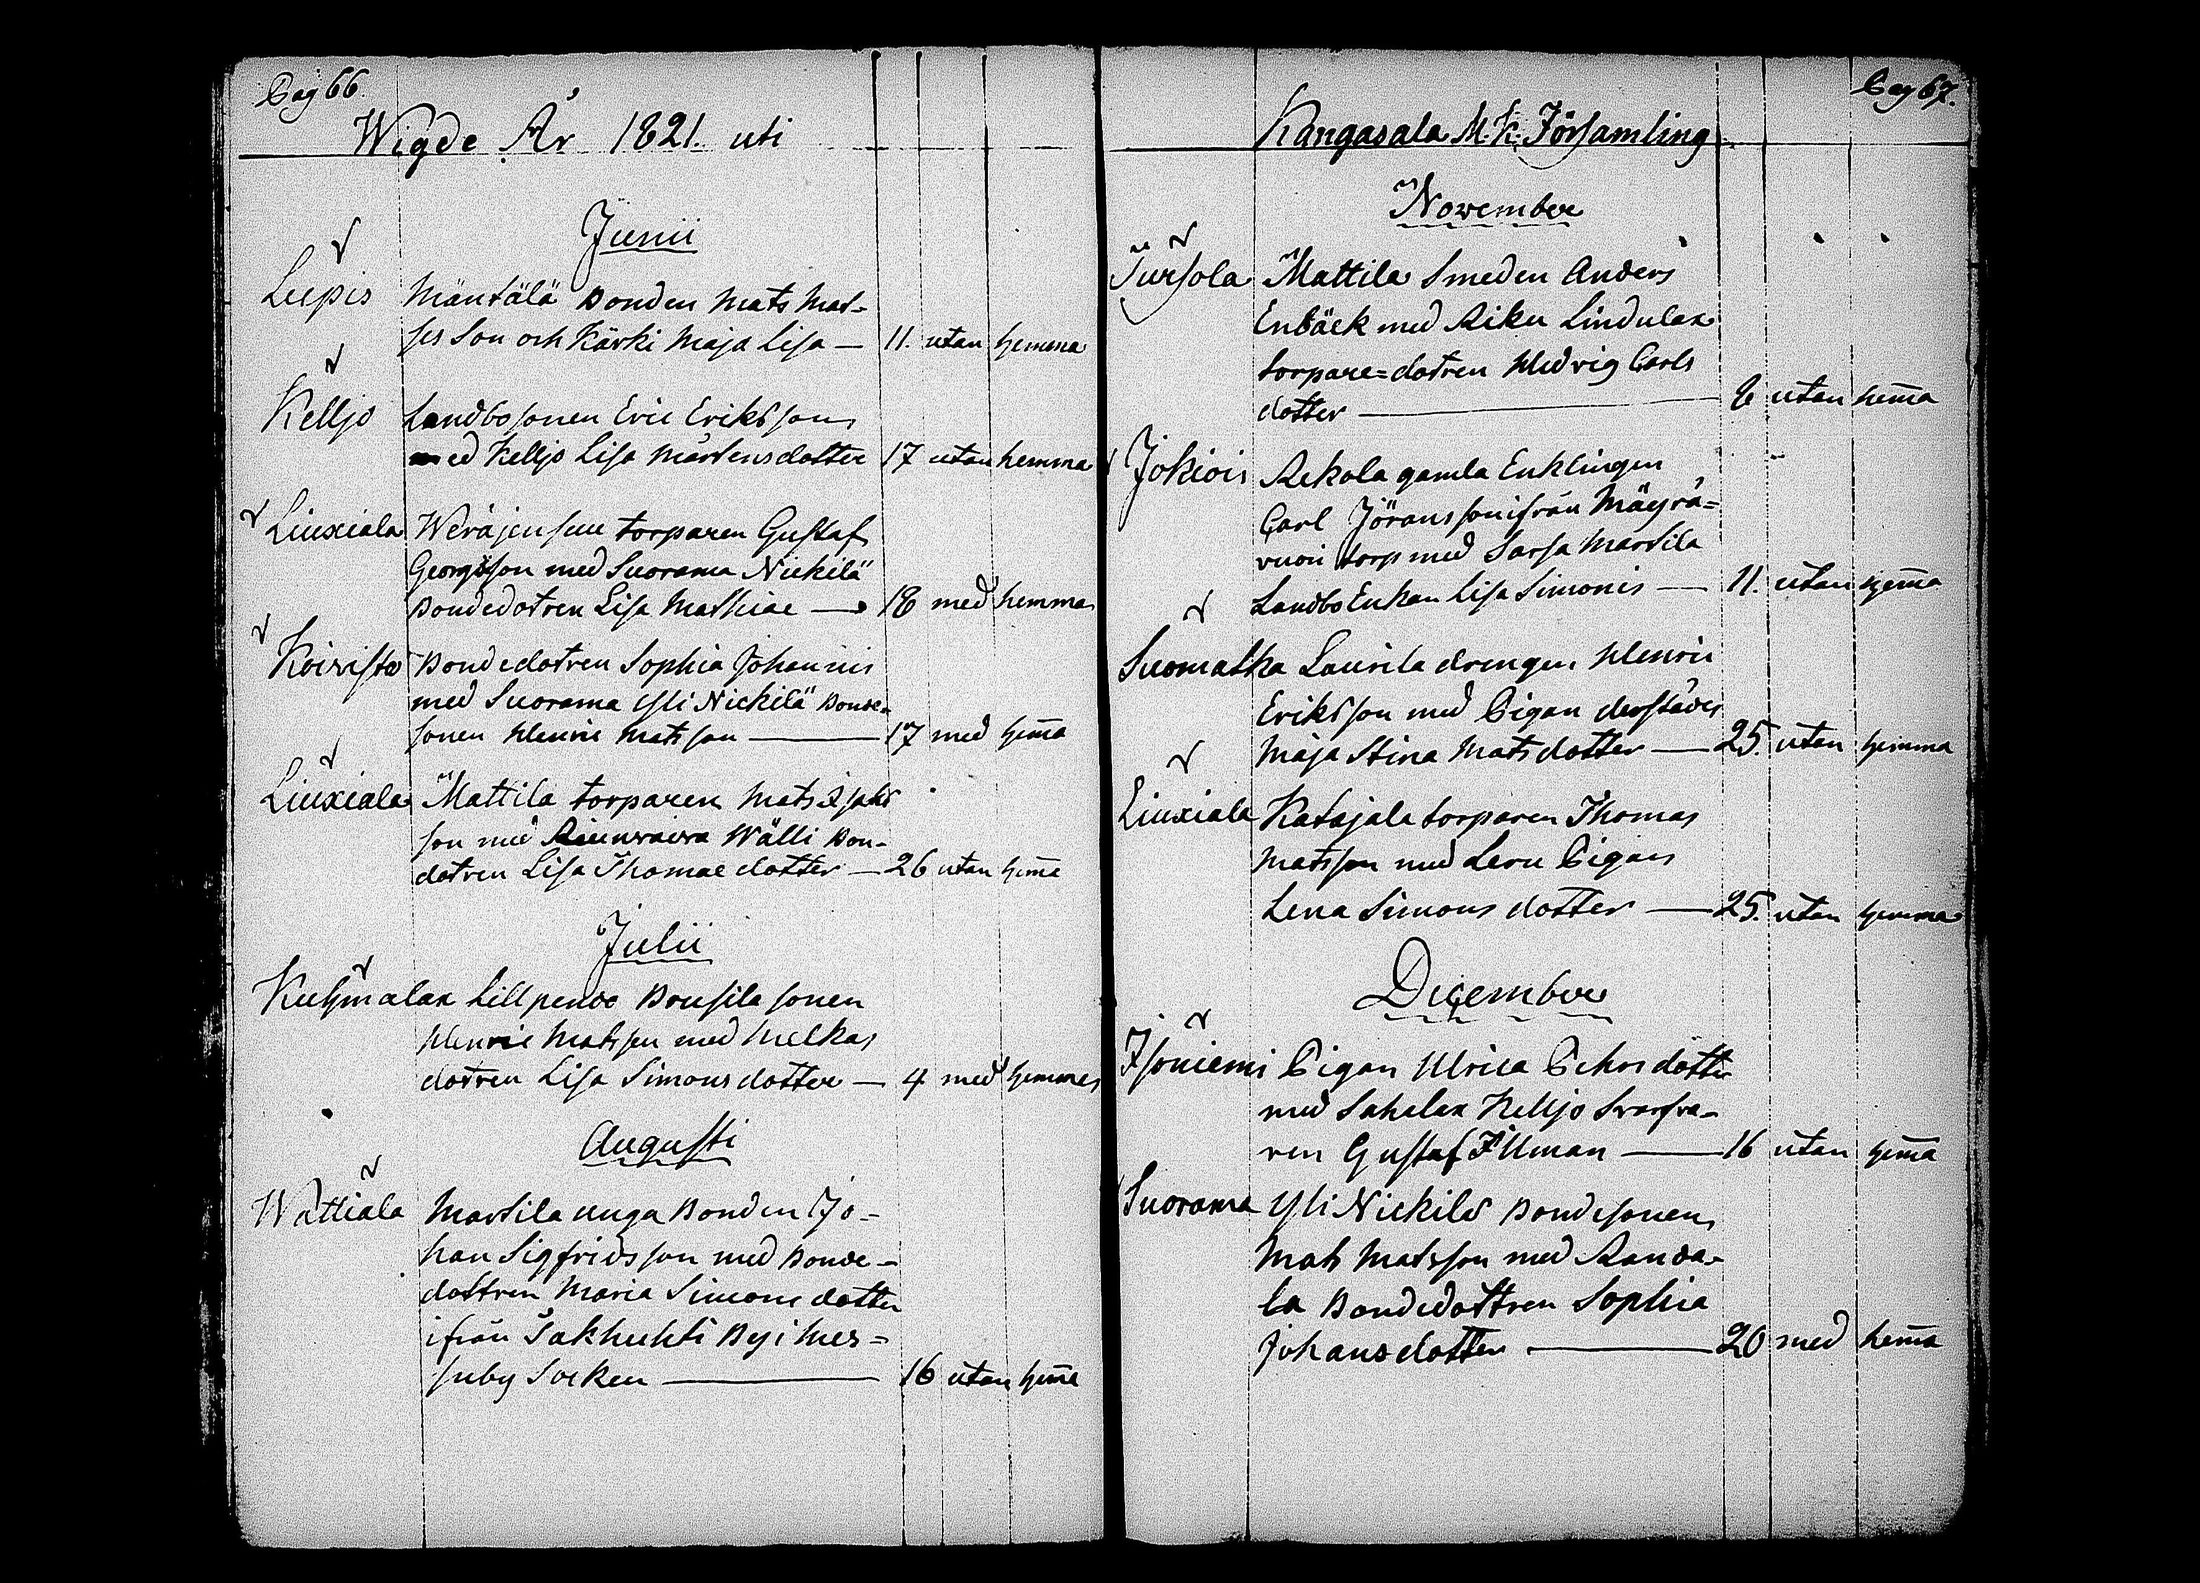 Pag 66.
Wigde År 1821. uti
Junii
Lepis Mäntälä Bonden Mats Mat-
ses Son och Kärki Maja Lisa — 11. utan hemma
Kelljo Landbosonen Eric Eriksson
med Kelljo Lisa Mårtensdotter 17 utan hemma
Liuxiala Weräjensuu torparen Gustaf
Georgsson med Suorama Nickilä
Bondedotren Lisa Mathiae — 18 med hemma
Koivisto Bondedotren Sophia Johannis
med Suorama Yli Nickilä Bonde-
sonen Henric Matsson — 17 med hema
Liuxiala Mattila torparen Mats Isaks
son med Wälli Bon-
dotren Lisa Thomae dotter — 26 utan hema
Julii
Kuhmalax Lillpendo Brusila sonen
Henric Matsson med Melkas
dotren Lisa Simons dotter — 4 med hemma
Augusti
Wattiala Martila unga Bonden Jo-
han Sigfridsson med Bonde-
dottren Maria Simons dotter
ifrån Sakhuhti By i Mes-
suby Socken — 16 utan hema
Pag 67.
Kangasala M. K. Församling
November
Tursola Mattila Smeden Anders
Enbäck med Riku Lindulax
torpare=dotren Hedvig Carls
dotter — 8 utan hema
Jokiois Rekola gamla Enklingen
Carl Jöransson ifrån Mäyrä=
vuori torp med Sarsa Martila
Landbo Enkan Lisa Simonis — 11. utan hema
Suomatka Laurila drengen Henric
Eriksson med Pigan derstädes
Maja Stina Mats dotter — 25. utan hemma
Liuxiala Katajala torparen Thomas
Matsson med Leru Pigan
Lena Simons dotter — 25. utan hemma
December
Isoniemi Pigan Ulrica Pehrs dotter
med Sahalax Kelljo Svarfva-
ren Gustaf Illman — 16 utan hema
Suorama Yli Nickilä Bondesonen
Mats Matsson med Randa-
la Bondedottren Sophia
Johansdotter — 20 med hema